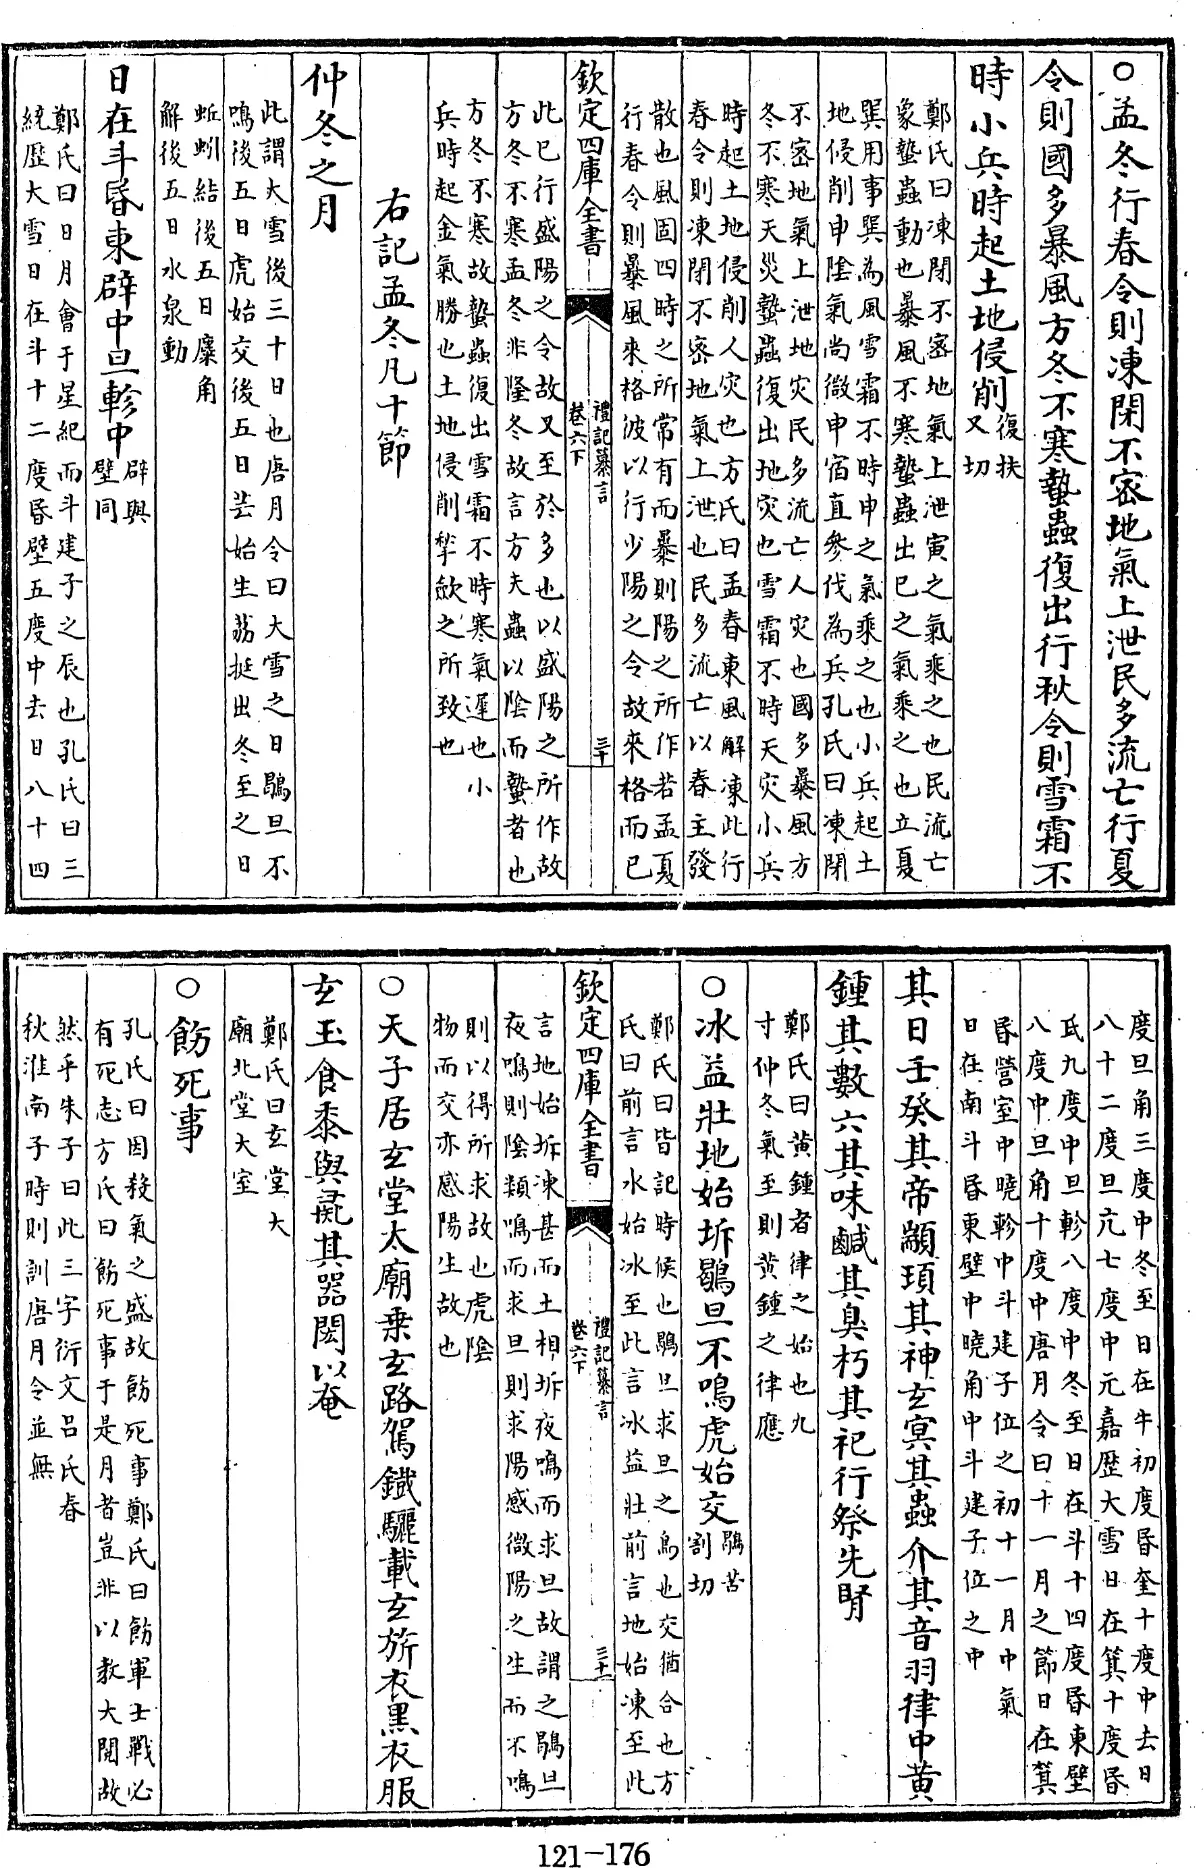 ○孟冬行春令則凍閉不密地氣上泄民多流亡行夏
令則國多暴風方冬不寒蟄蟲復出行秋令則雪霜不
時小兵時起土地侵削復扶
又切
鄭氏曰凍閉不密地氣上泄寅之氣乘之也民流亡
象蟄蟲動也暴風不寒蟄蟲出巳之氣乘之也立夏
巽用事巽為風雪霜不時申之氣乘之也小兵起土
地侵削申陰氣尚微申宿直參伐為兵孔氏曰凍閉
不密地氣上泄地災民多流亡人災也國多暴風方
冬不寒天災蟄蟲復出地災也雪霜不時天災小兵
時起土地侵削人災也方氏曰孟春東風解凍此行
春令則凍閉不密地氣上泄也民多流亡以春主發
散也風固四時之所常有而暴則陽之所作若孟夏
行春令則暴風來格彼以行少陽之令故來格而已
欽定四庫全書
禮記纂言
卷六下
三十
此已行盛陽之令故又至於多也以盛陽之所作故
方冬不寒孟冬非隆冬故言方夫蟲以陰而蟄者也
方冬不寒故蟄蟲復出雪霜不時寒氣遲也小
兵時起金氣勝也土地侵削揫斂之所致也
右記孟冬凡十節
仲冬之月
此謂大雪後三十日也唐月令曰大雪之日鶡旦不
鳴後五日虎始交後五日芸始生荔挺出冬至之日
蚯蚓結後五日麋角
解後五日水泉動
日在斗昏東辟中旦軫中辟與
壁同
鄭氏曰日月會于星紀而斗建子之辰也孔氏曰三
統歷大雪日在斗十二度昏壁五度中去日八十四
度旦角三度中冬至日在牛初度昏奎十度中去日
八十二度旦亢七度中元嘉歷大雪日在箕十度昏
氐九度中旦軫八度中冬至日在斗十四度昏東壁
八度中旦角十度中唐月令曰十一月之節日在箕
昏營室中曉軫中斗建子位之初十一月中氣
日在南斗昏東壁中曉角中斗建子位之中
其日壬癸其帝顓頊其神玄冥其蟲介其音羽律中黄
鍾其數六其味鹹其臭朽其祀行祭先腎
鄭氏曰黄鍾者律之始也九
寸仲冬氣至則黄鍾之律應
○冰益壯地始坼鶡旦不鳴虎始交鶡苦
割切
鄭氏曰皆記時候也鶡旦求旦之鳥也交猶合也方
氏曰前言水始冰至此言冰益壯前言地始凍至此
欽定四庫全書
禮記纂言
卷六下
三十一
言地始坼凍甚而土相坼夜鳴而求旦故謂之鶡旦
夜鳴則陰類鳴而求旦則求陽感微陽之生而不鳴
則以得所求故也虎陰
物而交亦感陽生故也
○天子居玄堂太廟乗玄路駕鐵驪載玄旂衣黒衣服
玄玉食黍與彘其器閎以奄
鄭氏曰玄堂大
廟北堂大室
○飭死事
孔氏曰因殺氣之盛故飭死事鄭氏曰飭軍士戰必
有死志方氏曰飭死事于是月者豈非以教大閱故
然乎朱子曰此三字衍文吕氏春
秋淮南子時則訓唐月令並無
121-176